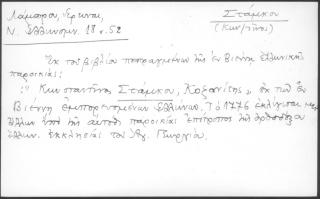 Λάμπρου, Σπυρίδων,
Ν. Ἑλληνομν. 18 σ. 52
Στάμκου
(Κων/τῖνος)
Ἐκ τοῦ βιβλίου πεπραγμένων τῆς ἐν Βιέννῃ ἑλληνικῆς
παροικίας:
"Κωνσταντῖνος Στάμκου, Κοζανίτης", ἐκ τῶν ἐν
Βιέννῃ ἐμπορευομένων Ἑλλήνων. Τὸ 1776 ἐκλέγεται
ὑπὸ τῆς αὐτόθι παροικίας ἐπίτροπος τῆς ὀρθοδόξου
ἑλλην. ἐκκλησίας τοῦ Ἁγ. Γεωργίου.